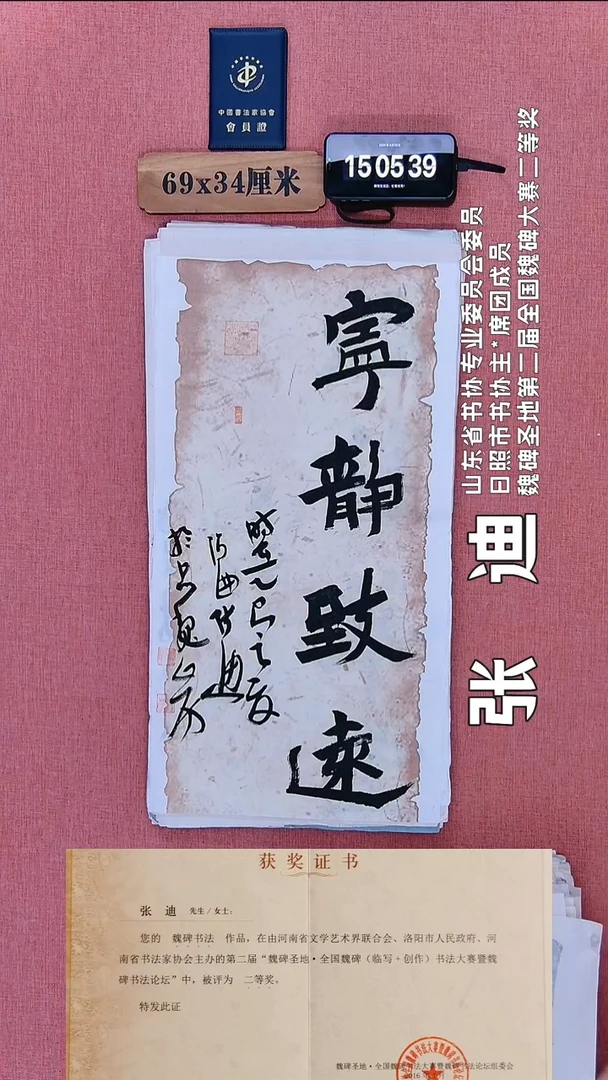 中國書法家協會
會員證
69x34厘米
15 05 39
山东省书协专业委员会委员
日照市书协主*席团成员
魏碑圣地第二届全国魏碑大赛二等奖
张 迪
寧靜致遠
获奖证书
张 迪 先生/女士:
您的 魏碑书法 作品，在由河南省文学艺术界联合会、洛阳市人民政府、河
南省书法家协会主办的第二届“魏碑圣地·全国魏碑（临写+创作）书法大赛暨魏
碑书法论坛”中，被评为 二等奖。
特发此证
魏碑圣地·全国魏碑书法大赛暨魏碑书法论坛组委会